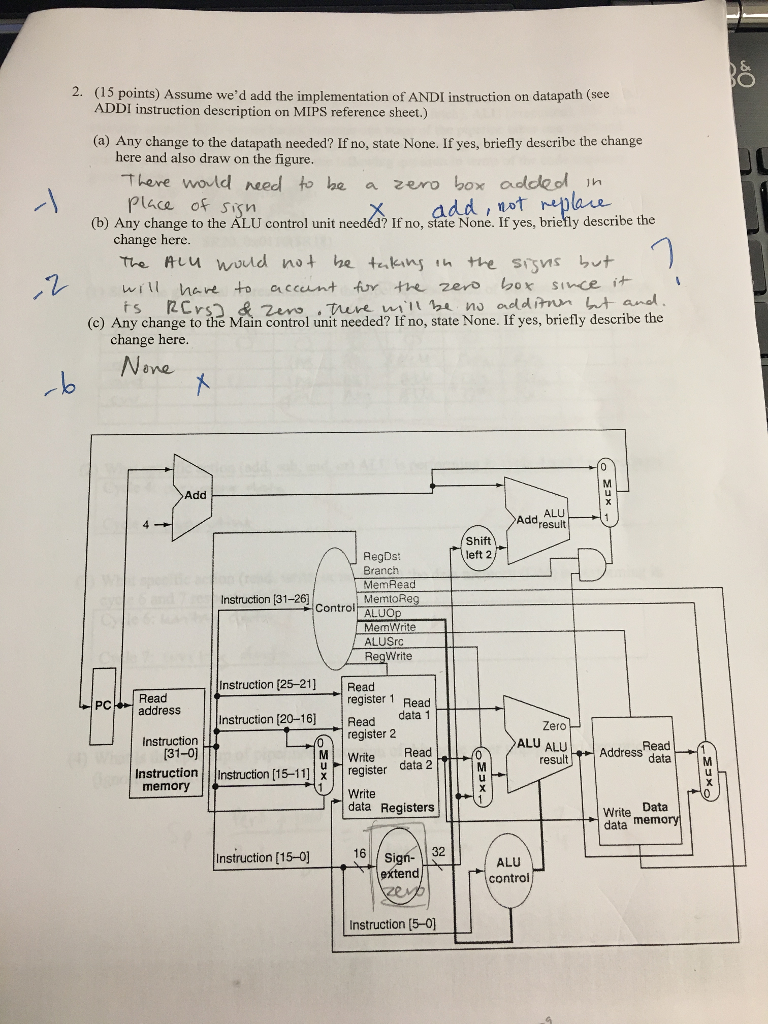 2. (15 points) Assume we'd add the implementation of ANDI instruction on datapath (see
ADDI instruction description on MIPS reference sheet.)
(a) Any change to the datapath needed? If no, state None. If yes, briefly describe the change
here and also draw on the figure.
There would need to be a zero box added in
-1
place of sign
x add, not replace
(b) Any change to the ALU control unit needed? If no, state None. If yes, briefly describe the
change here.
The ALU would not be taking in the signs but
?
-2
will have to account for the zero box since it
is R[rs] & zero. There will be no addition but and.
(c) Any change to the Main control unit needed? If no, state None. If yes, briefly describe the
change here.
None
-6
x
Add
4
0
M
u
x
1
Add ALU
result
Shift
left 2
RegDst
Branch
MemRead
MemtoReg
ALUOp
MemWrite
ALUSrc
RegWrite
Instruction [31–26]
Control
PC
Read
address
Instruction
[31–0]
Instruction
memory
Instruction [25–21]
Instruction [20–16]
Instruction [15–11]
0
M
u
x
1
Read
register 1
Read
data 1
Read
register 2
Write
register
Read
data 2
Write
data
Registers
0
M
u
x
1
Zero
ALU ALU
result
Address
Read
data
Write
data
Data
memory
1
M
u
x
0
Instruction [15–0]
16
Sign-
extend
zero
32
ALU
control
Instruction [5–0]